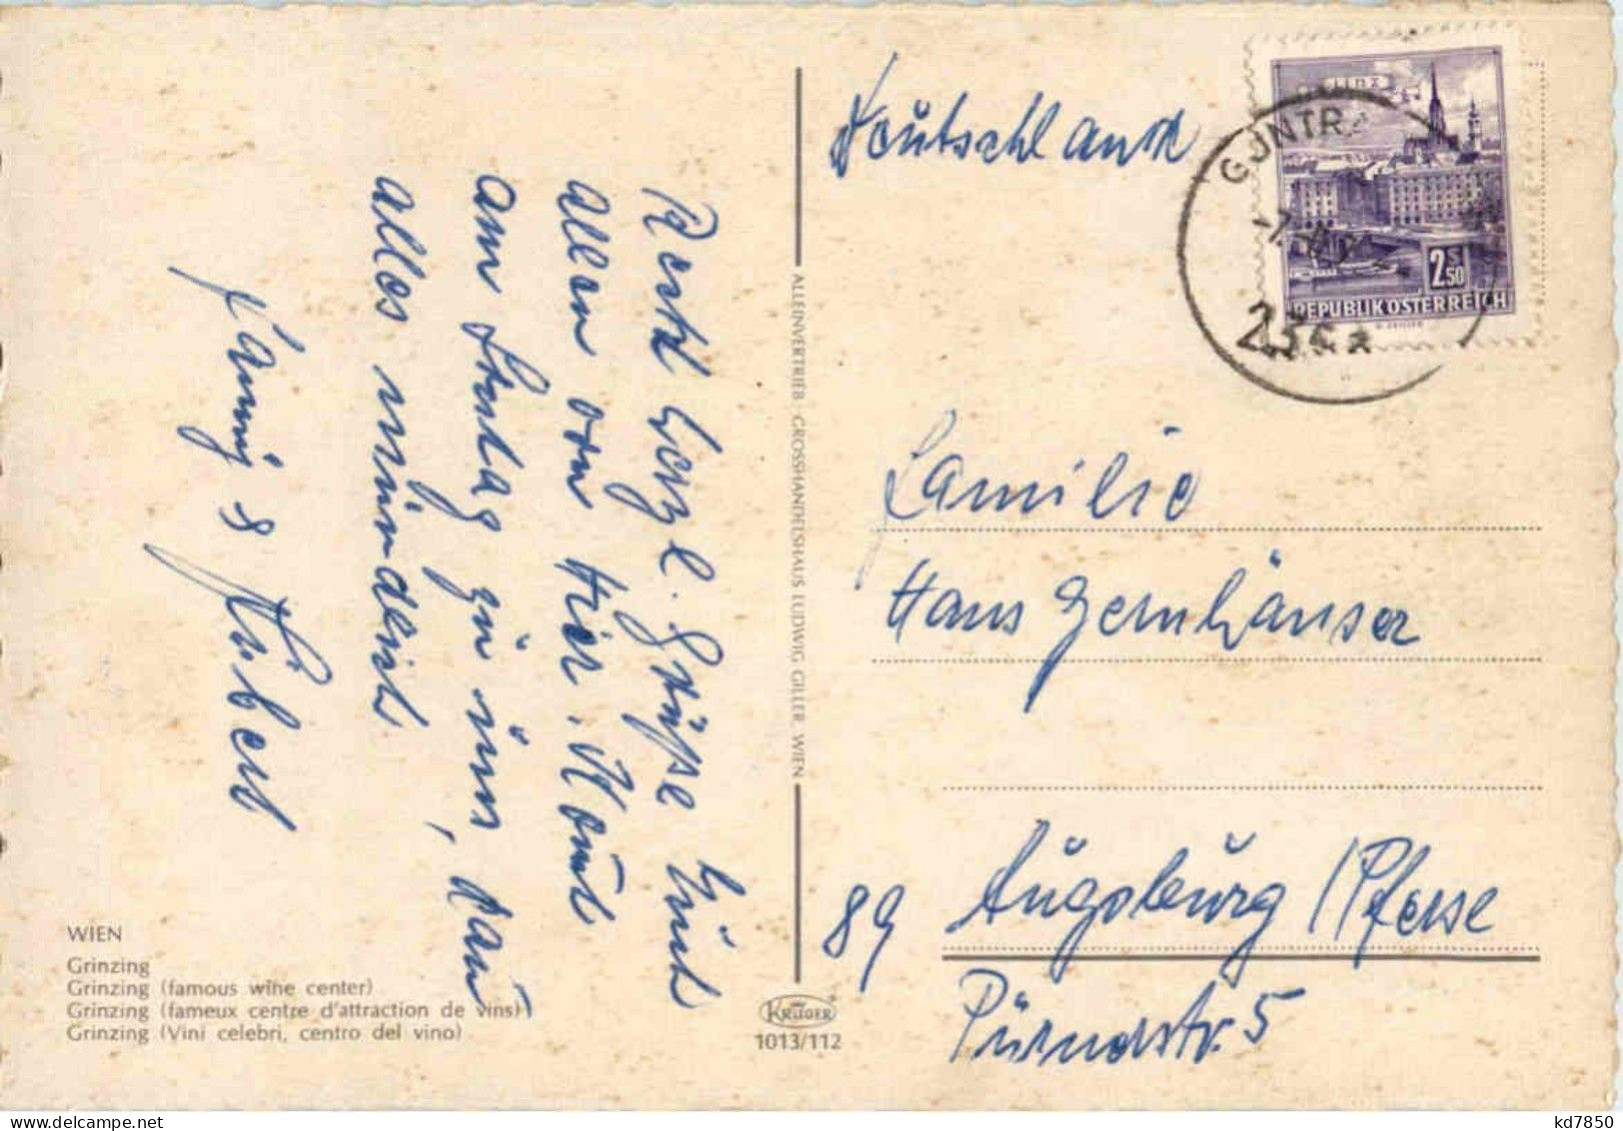 Recht herzl. Grüße euch
allen von hier. Kommt
am Freitag zu uns, dann
alles mündlich.
Fanny & Hubert
WIEN
Grinzing
Grinzing (famous wine center)
Grinzing (fameux centre d'attraction de vins)
Grinzing (Vini celebri, centro del vino)
ALLEINVERTRIEB: GROSSHANDELSHAUS LUDWIG GILLER, WIEN
KRÜGER
1013/112
Deutschland
Linz
2.50
REPUBLIK ÖSTERREICH
GUNTRA
Familie
Hans Gernhäuser
89 Augsburg / Pfersee
5
delcampe.net
kd7850